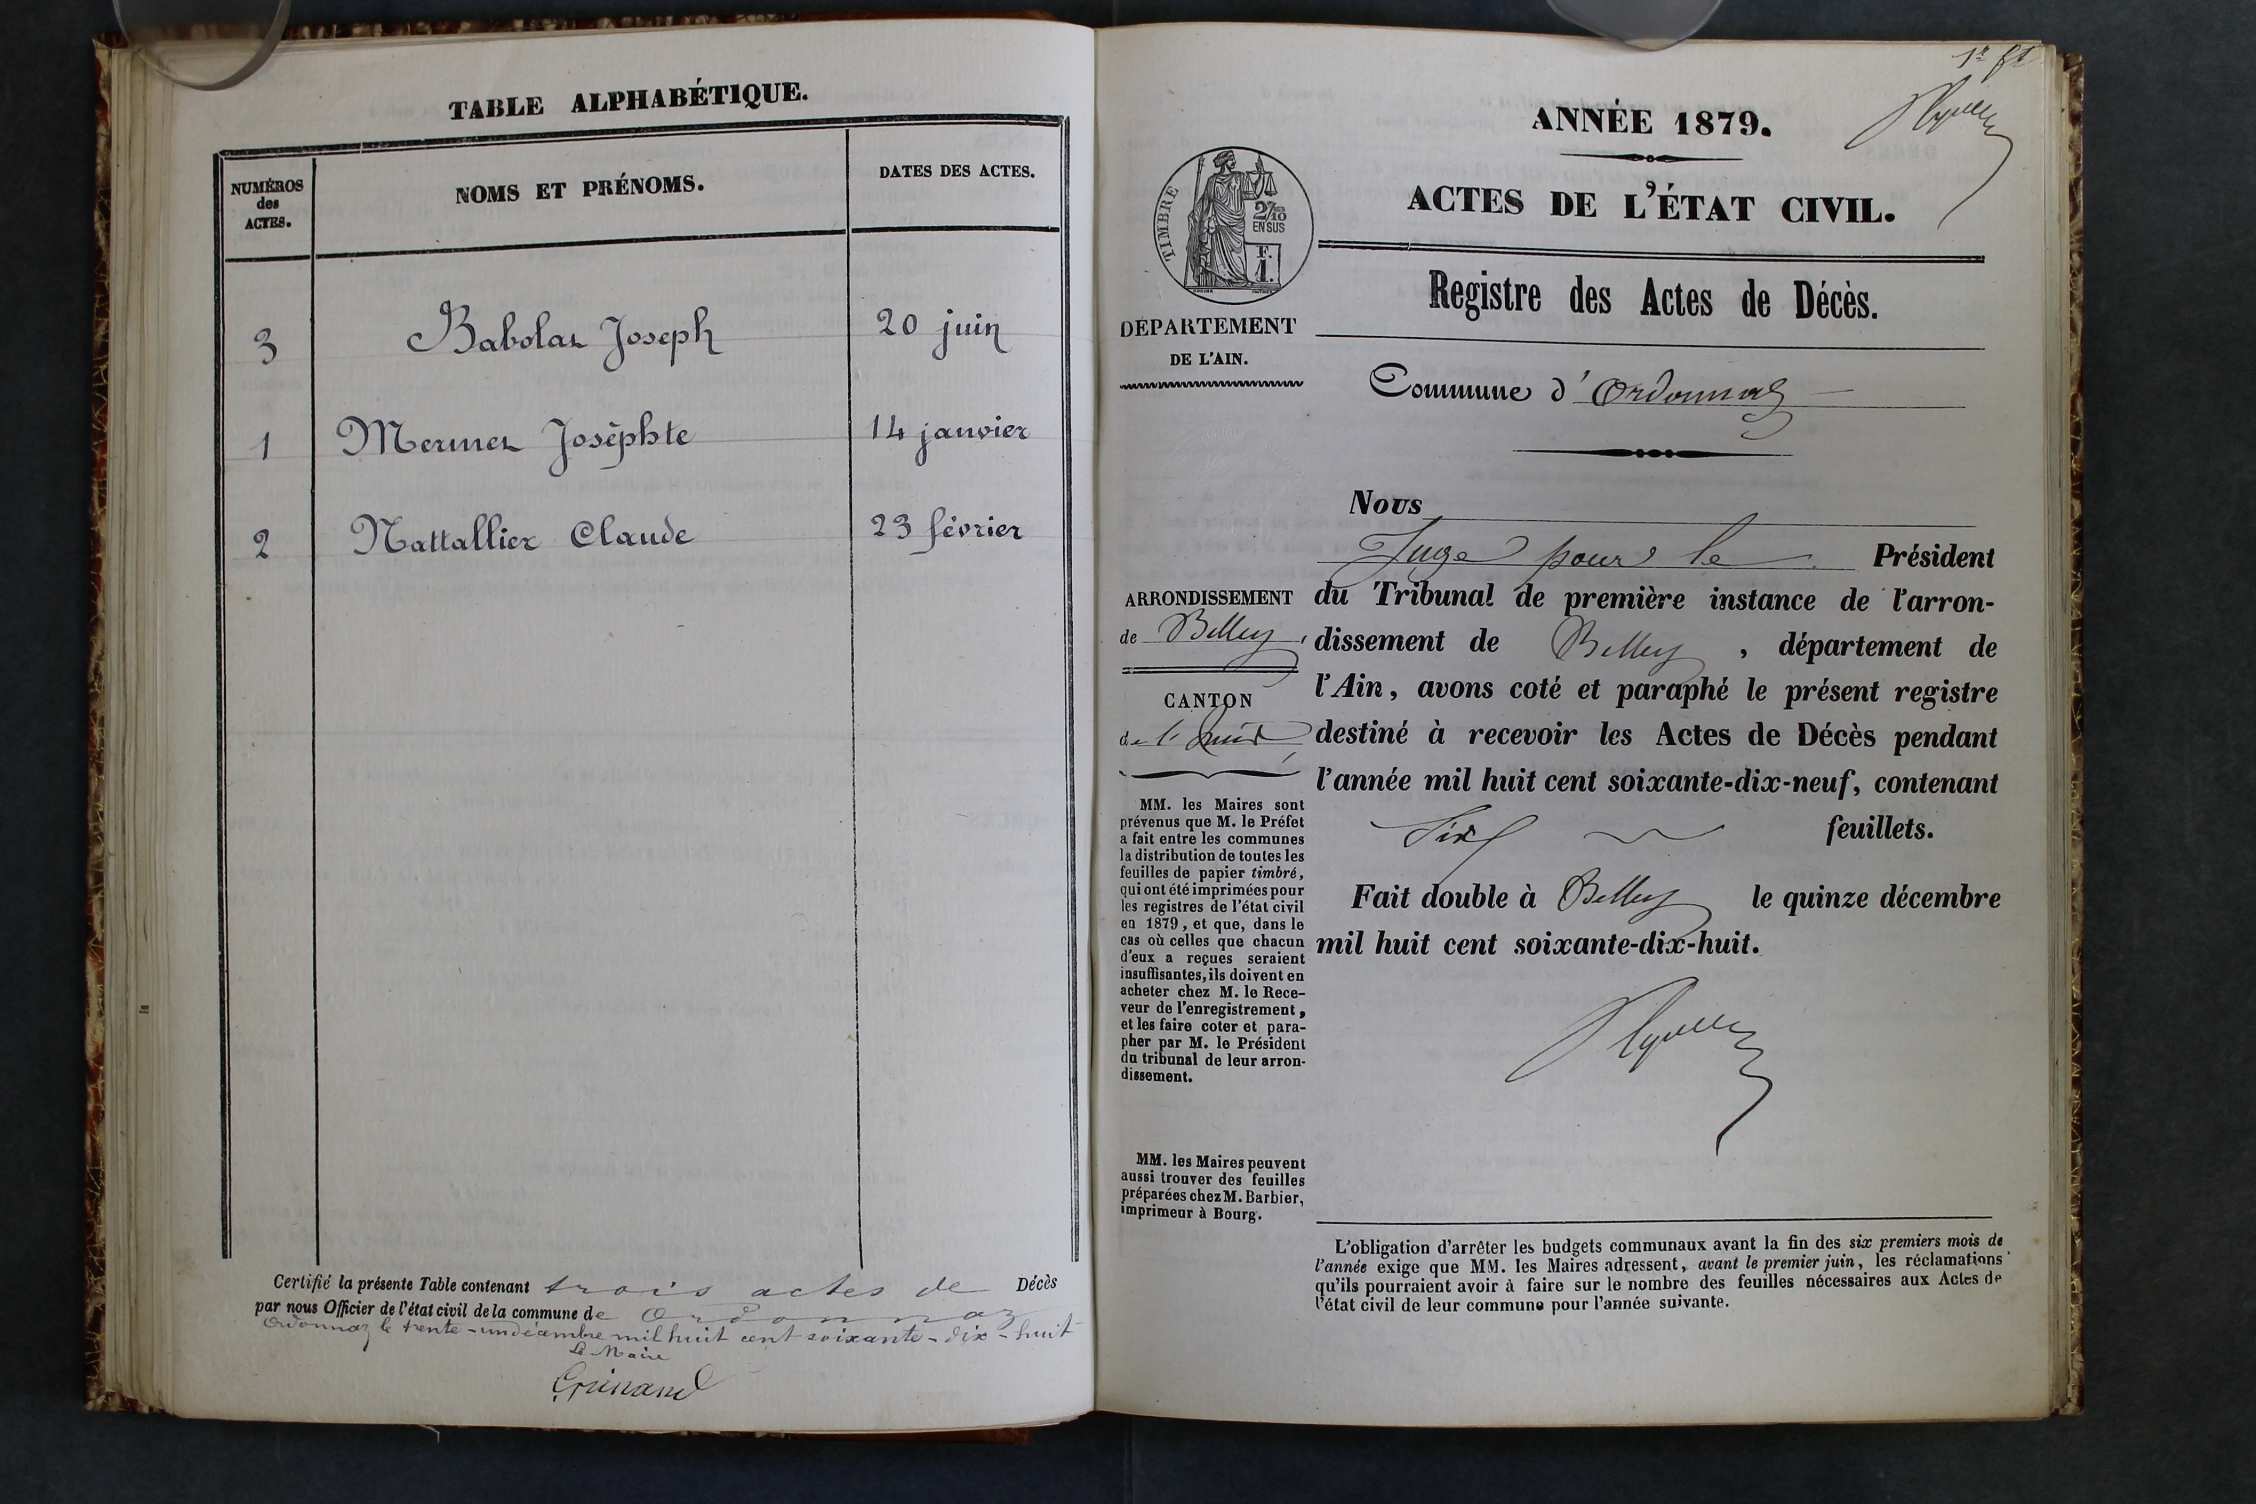 TABLE ALPHABÉTIQUE.
NUMÉROS
des
ACTES.
NOMS ET PRÉNOMS.
DATES DES ACTES.
3 Babolaz Joseph 20 juin
1 Mermez Josephte 14 janvier
2 Nattallier Claude 23 février
Certifié la présente Table contenant trois actes de Décès
par nous Officier de l'état civil de la commune de Ordonnaz
Ordonnaz le trente-un décembre mil huit cent soixante-dix-huit
Le Maire
1r ft
ANNÉE 1879.
ACTES DE L'ÉTAT CIVIL.
TIMBRE
2/10
EN SUS
F.
1.
Registre des Actes de Décès.
DÉPARTEMENT
DE L'AIN.
Commune d'Ordonnaz
Nous
Juge pour le Président
du Tribunal de première instance de l'arron-
dissement de Belley, département de
l'Ain, avons coté et paraphé le présent registre
destiné à recevoir les Actes de Décès pendant
l'année mil huit cent soixante-dix-neuf, contenant
Six feuillets.
Fait double à Belley le quinze décembre
mil huit cent soixante-dix-huit.
ARRONDISSEMENT
de Belley
CANTON
de l'huis
MM. les Maires sont
prévenus que M. le Préfet
a fait entre les communes
la distribution de toutes les
feuilles de papier timbré,
qui ont été imprimées pour
les registres de l'état civil
en 1879, et que, dans le
cas où celles que chacun
d'eux a reçues seraient
insuffisantes, ils doivent en
acheter chez M. le Rece-
veur de l'enregistrement,
et les faire coter et para-
pher par M. le Président
du tribunal de leur arron-
dissement.
MM. les Maires peuvent
aussi trouver des feuilles
préparées chez M. Barbier,
imprimeur à Bourg.
L'obligation d'arrêter les budgets communaux avant la fin des six premiers mois de
l'année exige que MM. les Maires adressent, avant le premier juin, les réclamations
qu'ils pourraient avoir à faire sur le nombre des feuilles nécessaires aux Actes de
l'état civil de leur commune pour l'année suivante.